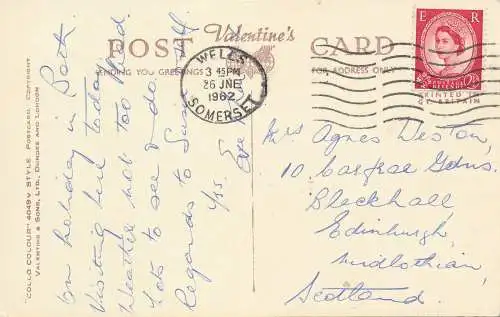 POST Valentine's CARD
SENDING YOU GREETINGS
FOR ADDRESS ONLY
WELLS
3 45PM
26 JNE
1962
SOMERSET
E R
POSTAGE REVENUE
2½D
PRINTED IN
GT. BRITAIN
"COLLO COLOUR" 4049V STYLE. POSTCARD COPYRIGHT
VALENTINE & SONS, LTD., DUNDEE AND LONDON
On holiday in Bath.
Visiting here today.
Weather not too bad.
Lots to see & do.
Regards to Susie & All
Mrs Agnes Weston,
10 Carfrae Gdns.
Blackhall
Edinburgh
Midlothian
Scotland.